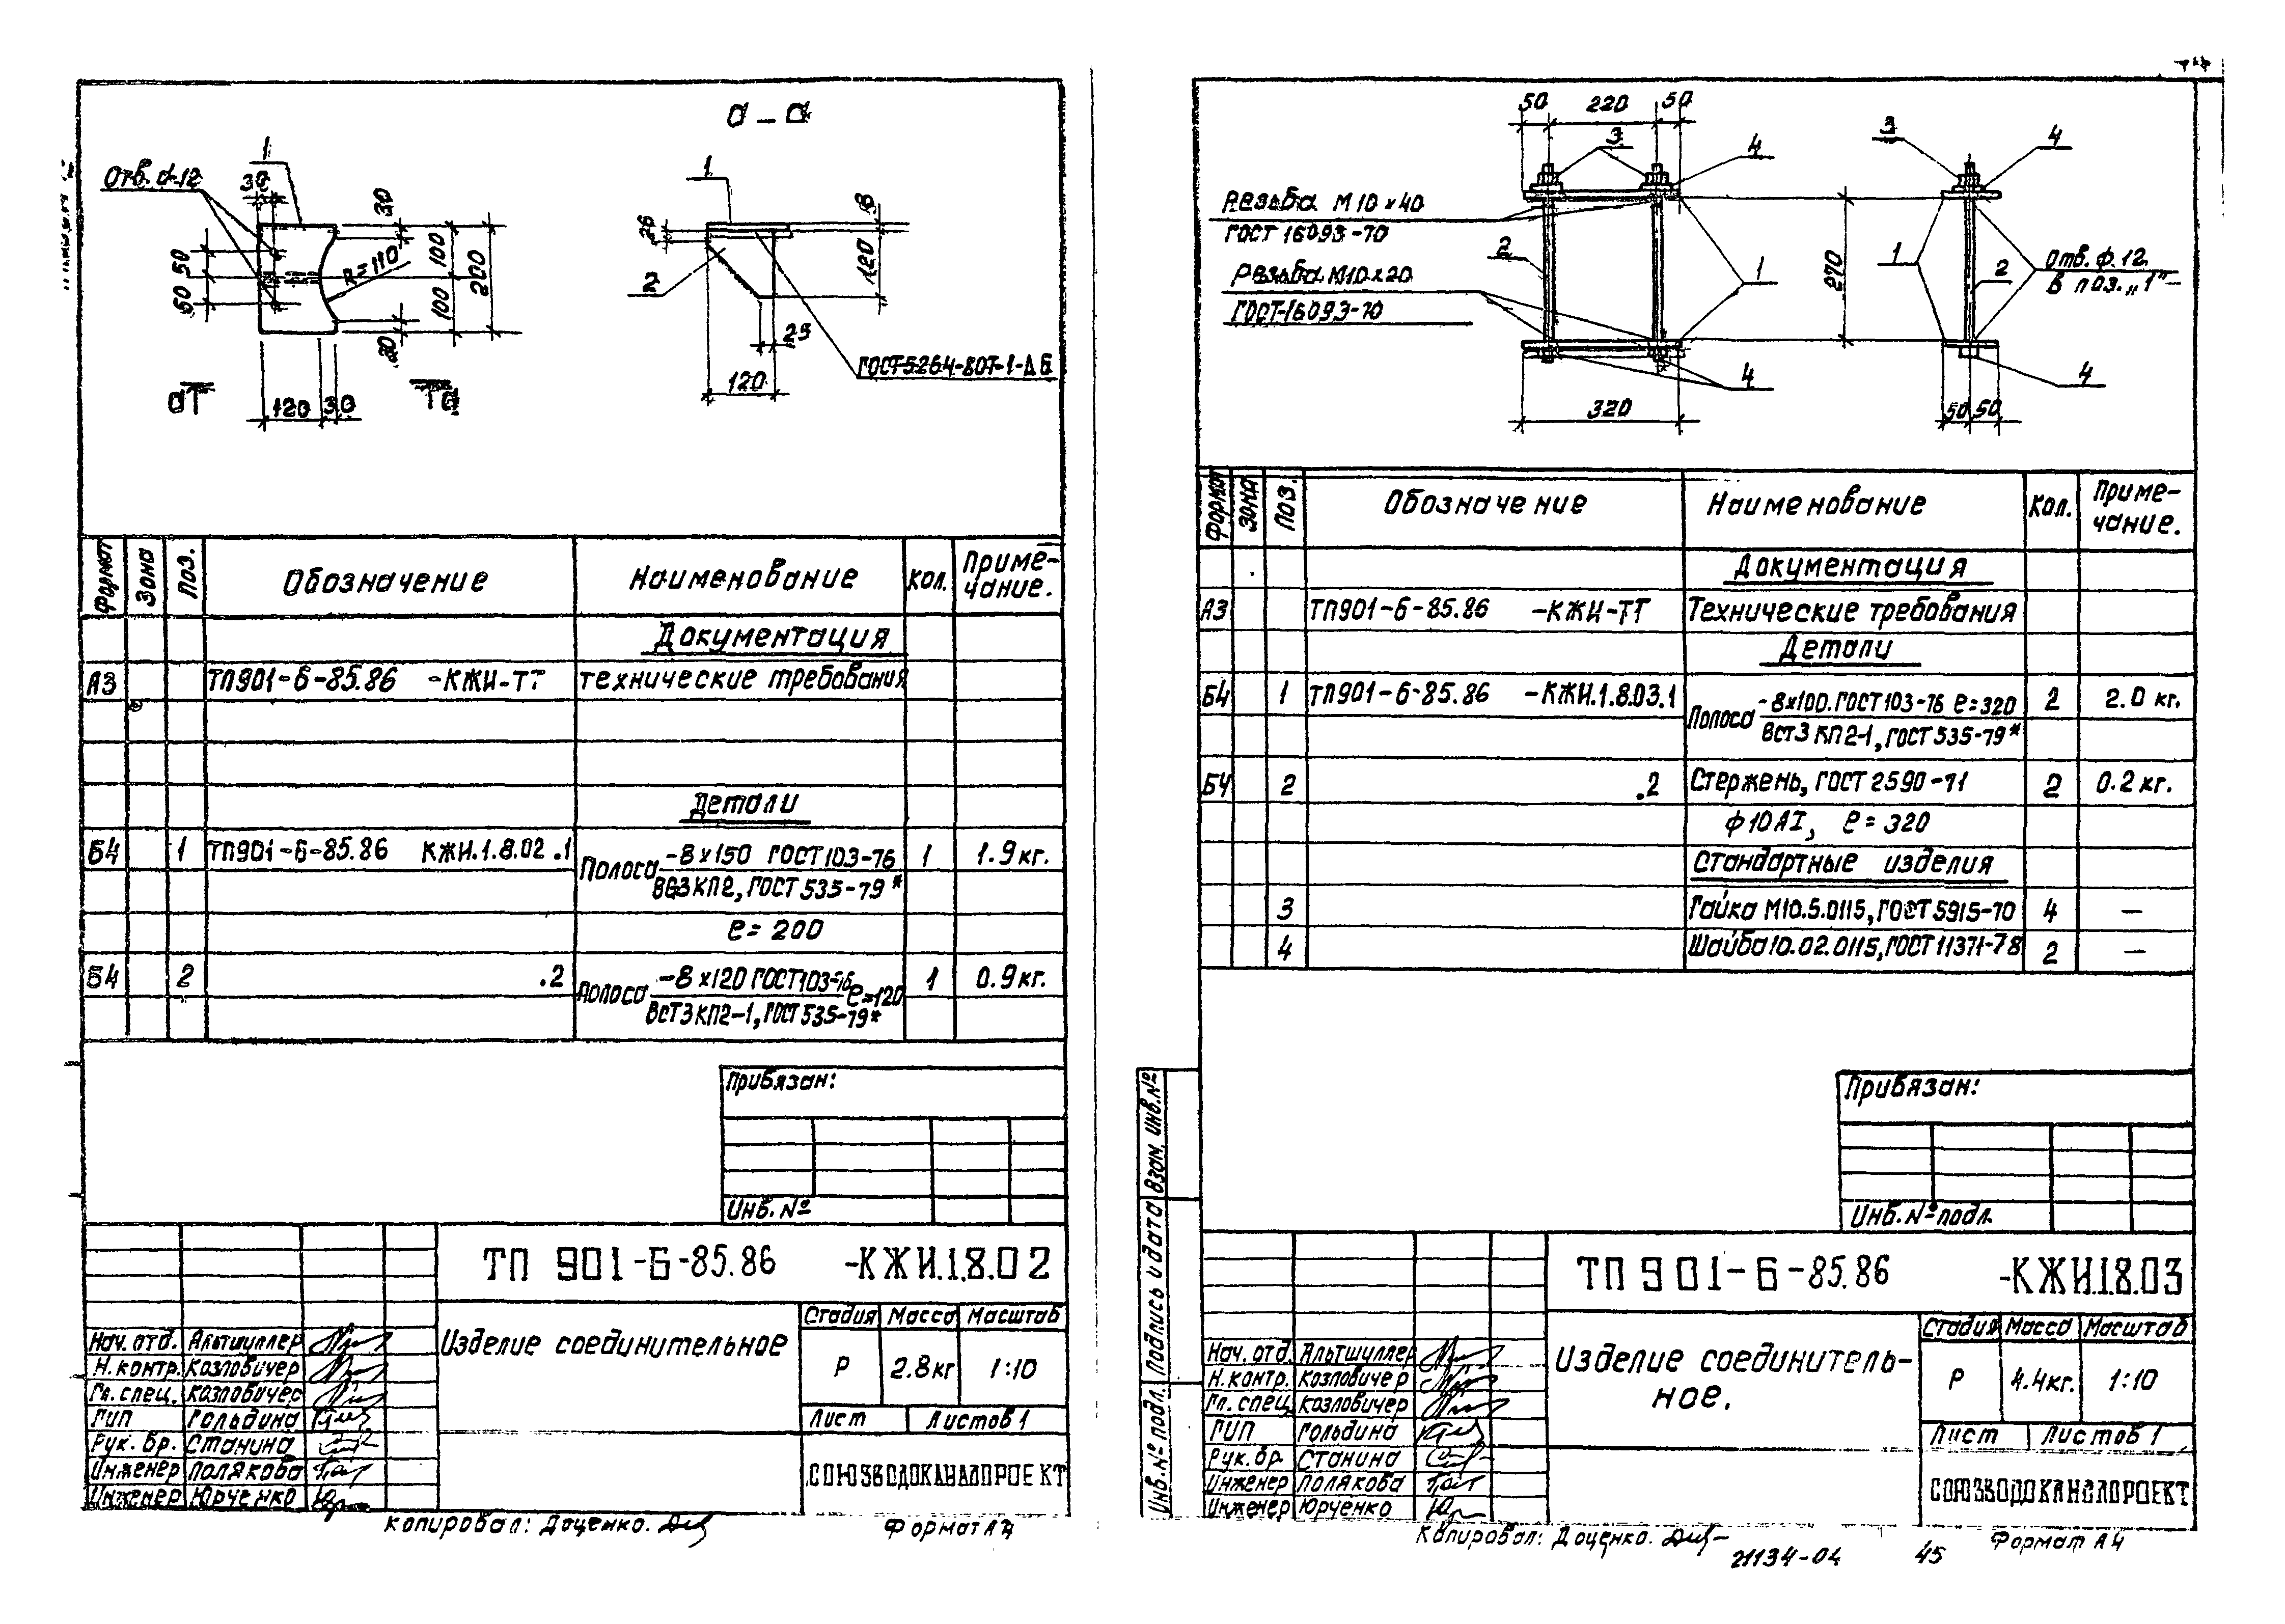 а – а
1
Отв. d-12
30
30
50
50
R=110
100
100
200
30
120
30
а
а
1
26
2
8
120
25
120
ГОСТ 5264-80Т-1-Δ6
Формат
Зона
Поз.
Обозначение
Наименование
Кол.
Приме-
чание.
Документация
А3 ТП901-6-85.86 -КЖИ-ТТ технические требования
Детали
Б4 1 ТП901-6-85.86 КЖИ.1.8.02.1 Полоса -8х150 ГОСТ103-76 1 1.9кг.
ВСт3КП2, ГОСТ 535-79*
ℓ=200
Б4 2 .2 Полоса -8х120 ГОСТ103-76 ℓ=120 1 0.9кг.
ВСт3КП2-1, ГОСТ 535-79*
Привязан:
Инв. №
ТП 901-6-85.86 -КЖИ.1.8.02
Изделие соединительное
Стадия Масса Масштаб
Р 2.8кг 1:10
Лист Листов 1
СОЮЗВОДОКАНАЛПРОЕКТ
Нач. отд. Альтшуллер
Н.контр. Козловичер
Гл. спец. Козловичер
ГИП Гольдина
Рук. бр. Станина
Инженер Полякова
Инженер Юрченко
Копировал: Доценко.
Формат А4
50 220 50
3
4
Резьба М10х40
ГОСТ 16093-70
2
Резьба М10х20
ГОСТ-16093-70
1
4
320
270
3
4
1
2
Отв. ф.12
в поз. „1"
4
50 50
Формат
Зона
Поз.
Обозначение
Наименование
Кол.
Приме-
чание.
Документация
А3 ТП901-6-85.86 -КЖИ-ТТ Технические требования
Детали
Б4 1 ТП901-6-85.86 -КЖИ.1.8.03.1 Полоса -8х100.ГОСТ103-76 ℓ=320 2 2.0 кг.
ВСт3КП2-1, ГОСТ 535-79*
Б4 2 .2 Стержень, ГОСТ 2590-71 2 0.2кг.
ф10АI, ℓ=320
Стандартные изделия
3 Гайка М10.5.0115, ГОСТ 5915-70 4 —
4 Шайба10.02.0115, ГОСТ 11371-78 2 —
Привязан:
Инв. № подл.
Взам. инв. №
Подпись и дата
Инв. № подл.
ТП 901-6-85.86 -КЖИ.1.8.03
Изделие соединитель-
ное.
Стадия Масса Масштаб
Р 4.4кг. 1:10
Лист Листов 1
СОЮЗВОДОКАНАЛПРОЕКТ
Нач. отд. Альтшуллер
Н.контр. Козловичер
Гл. спец. Козловичер
ГИП Гольдина
Рук. бр. Станина
Инженер Полякова
Инженер Юрченко
Копировал: Доценко.
21134-04
45
Формат А4